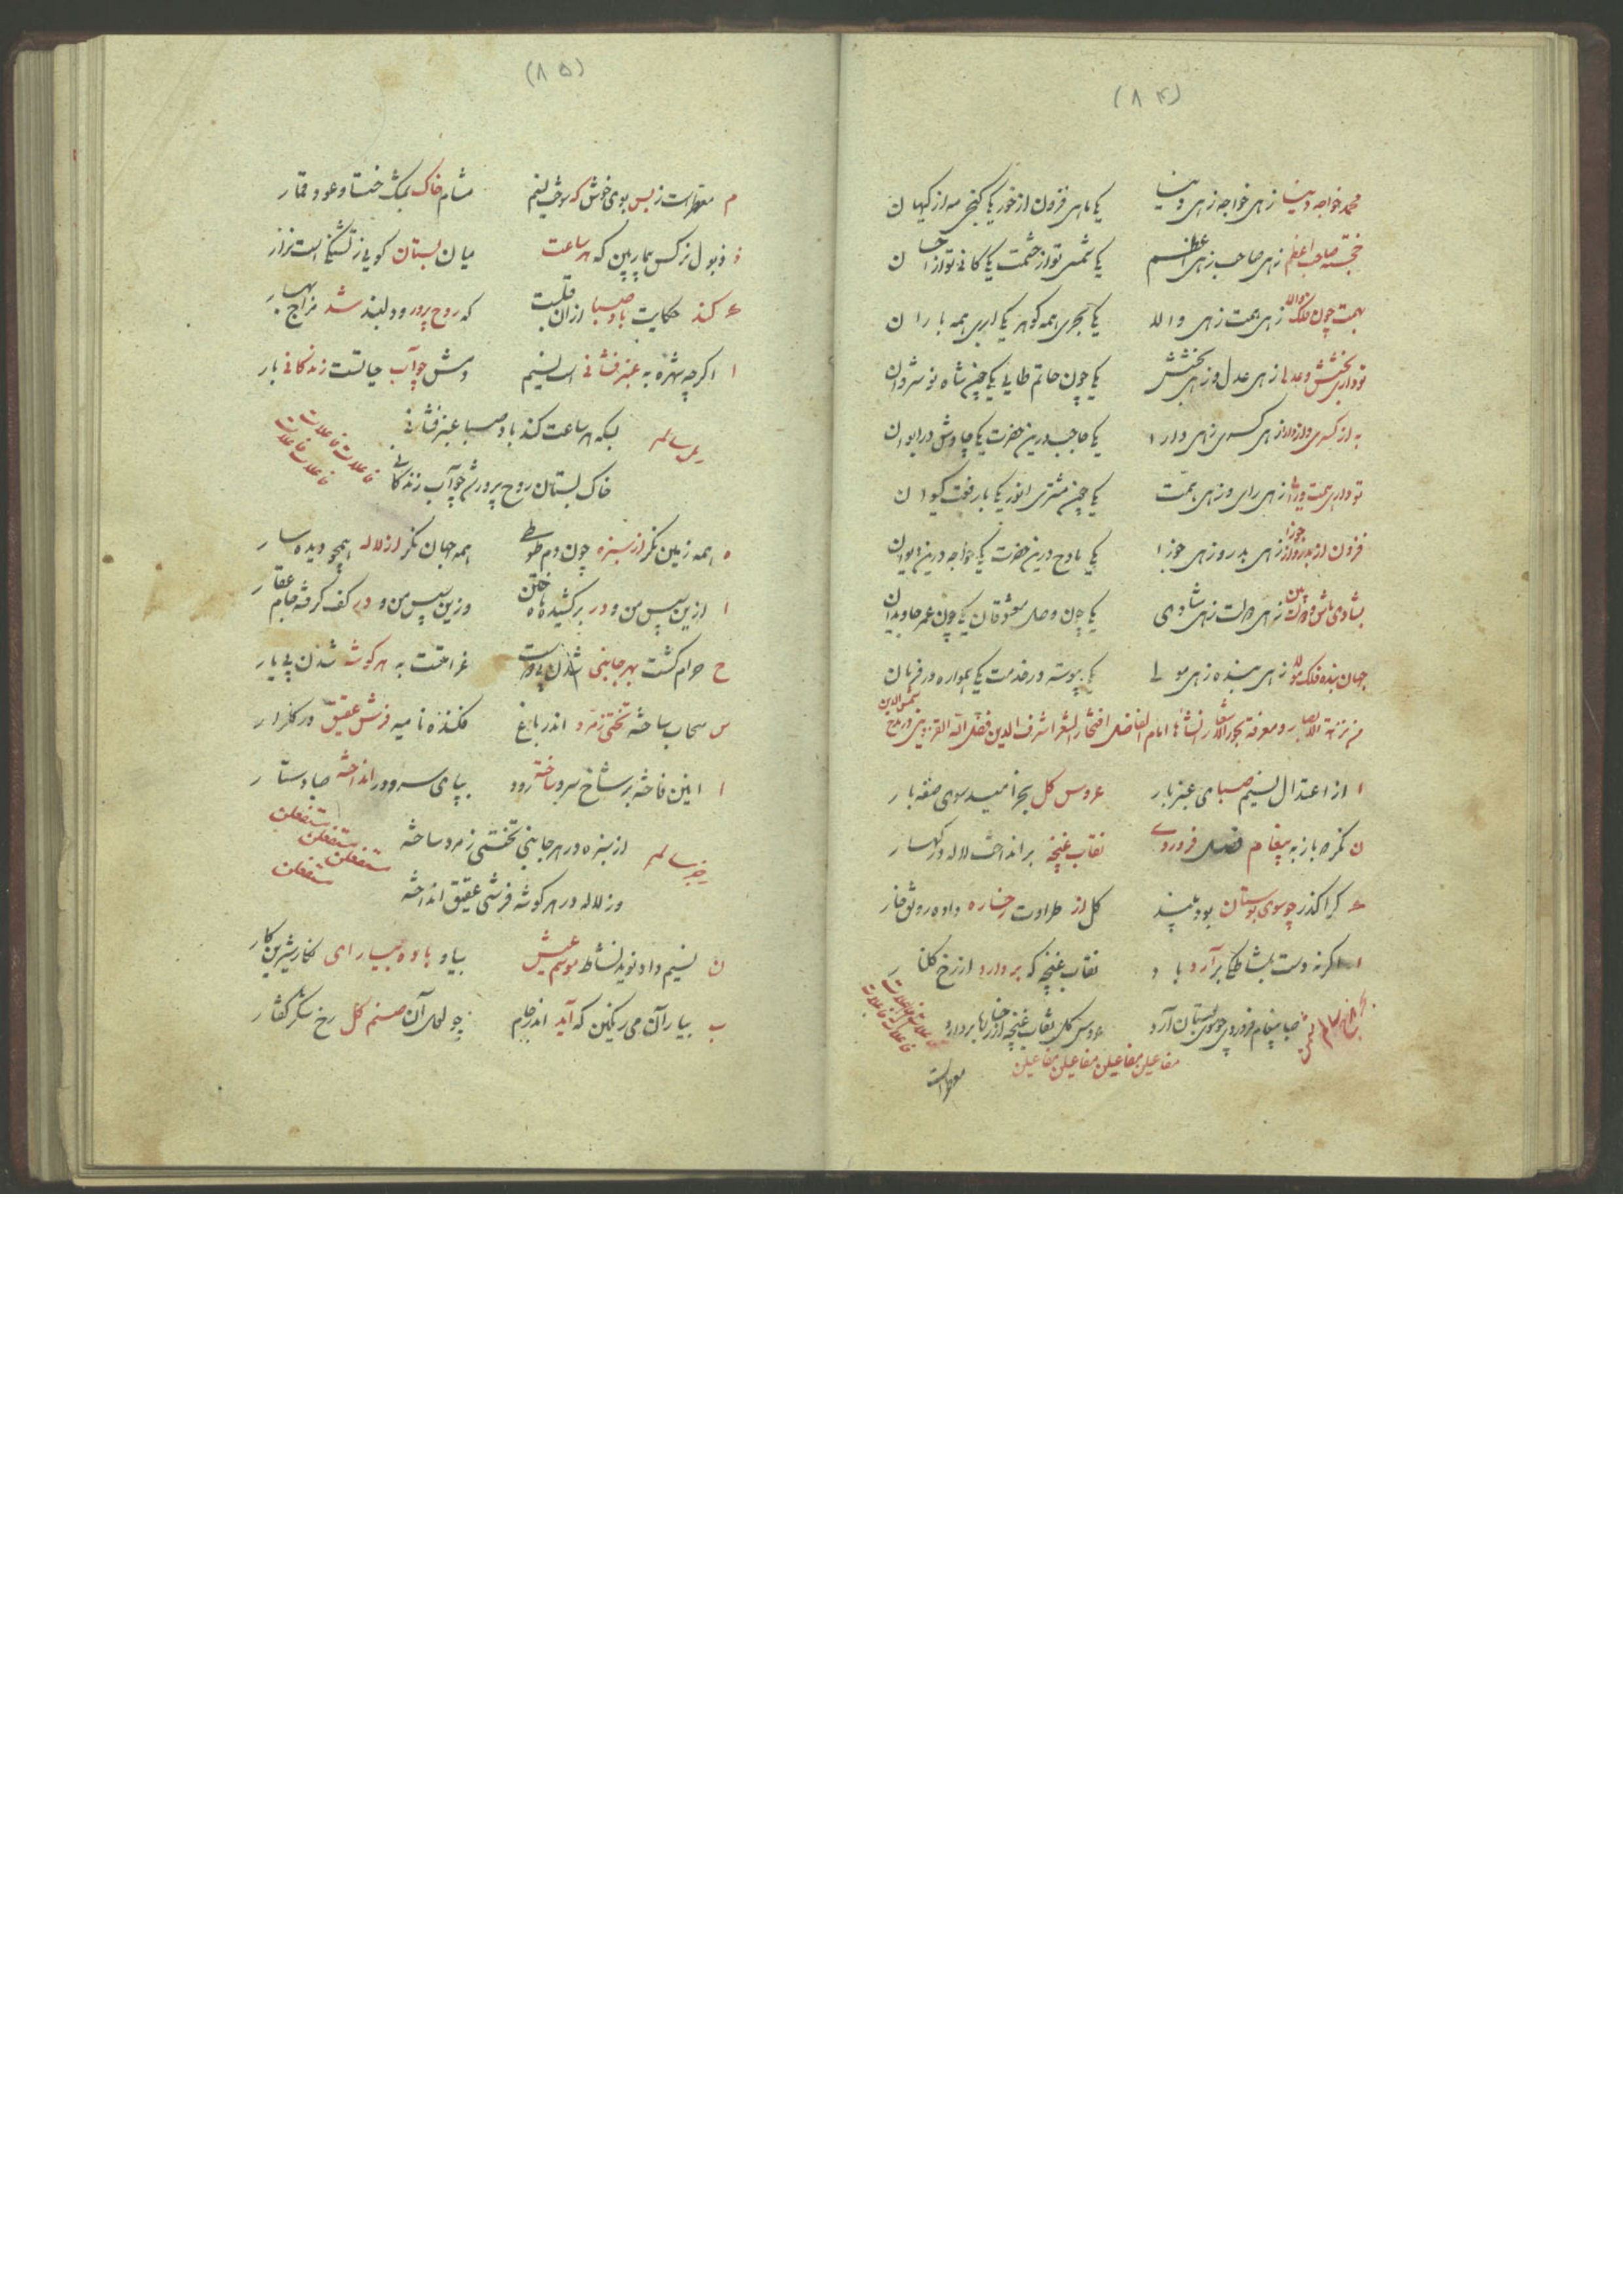 (۸۴)
محمد خواجه دنیا زهی خواجه زهی دنیا یکی ماهی فزون از خور یکی گنجی مه از کیهان
خجسته صاحب اعظم زهی صاحب زهی اعظم یکی شمس تو از حشمت یکی کانی تو از احسان
بهمت چون فلک والله زهی همت زهی والله یکی بحری همه گوهر یکی ابری همه باران
تو داری بخشش و عدلها زهی عدل و زهی بخشش یکی چون حاتم طایی یکی چون شاه نوشروان
به از کسری و از دارا زهی کسری زهی دارا یکی حاجب درین حضرت یکی چاوش در ایوان
تو داری همت و رای زهی رای و زهی همت یکی چون مشتری انور یکی با رفعت کیوان
فزون از بدر و از جوزا زهی بدر و زهی جوزا یکی مادح درین حضرت یکی خواجه درین دیوان
بشادی باش و دولت بین زهی دولت زهی شادی یکی چون وصل معشوقان یکی چون عمر جاویدان
جهان بنده فلک مولا زهی بنده زهی مولی یکی پیوسته در خدمت یکی همواره در فرمان
من نزهة الابصار و معرفة بحور الاشعار انشأها امام الفاضل افتخار الشعرا شرف الدین فضل الله القزوینی در مدح شمس الدین
ا از اعتدال نسیم صبای عنبربار عروس گل بخرامید سوی صفه بار
ن نگر که باز به پیغام فصل فروردی نقاب غنچه برانداخت لاله در کهسار
کرا گذر چو سوی بوستان بود بیند گل از طراوت رخساره داده رونق خار
ا اگر نه دست بمشاطگی برآرد باد نقاب غنچه که بردارد از رخ گلنار
صبا پیغام فروردی چو سوی بستان آرد عروس گل نقاب غنچه از رخسارها بردارد
مفاعیلن مفاعیلن مفاعیلن مفاعیلن
معطر است
(۸۵)
م معطر است ز بس بوی خوش که سوخت نسیم مشام خاک بمشک ختا و عود قمار
ذ ذبول نرگس بیمار بین که هر ساعت میان بستان گویی ز تشنگیست نزار
کند حکایت باد صبا از آن قلبت که روح پرور و دلبند شد مزاج بهار
ا اگرچه شهره به عنبر فشانی است نسیم دمش چو آب حیاتست زندگانی بار
رمل سالم
بسکه هر ساعت کند باد صبا عنبر فشانی
خاک بستان روح پرور شد چو آب زندگانی
فاعلات فاعلات فاعلات فاعلات
ه همه زمین نگر از سبزه چون دم طوطی همه جهان نگر از لاله همچو دیده سار
ا ازین سپس من و در بر کشیده ماه ختن وزین سپس من و در کف گرفته جام عقار
ح حرام گشت بهر جانبی شدن بی دوست غرامتست به هر گوشه شدن بی یار
س سحاب ساخته تختی زمرد اندر باغ فکنده نامیه فرش عقیق در گلزار
ا انین فاخته بر شاخ سرو ساخته رود بپای سرو در انداخته صبا دستار
رجز سالم
از سبزه در هر جانبی تختی زمرد ساخته
وز لاله در هر گوشه فرشی عقیق انداخته
مستفعلن مستفعلن مستفعلن مستفعلن
ن نسیم داد نوید نشاط موسم عیش بیا و باده بیار ای نگار شیرین کار
ب بیار آن می رنگین که آید اندر جام چو لعل آن صنم گل رخ شکر گفتار